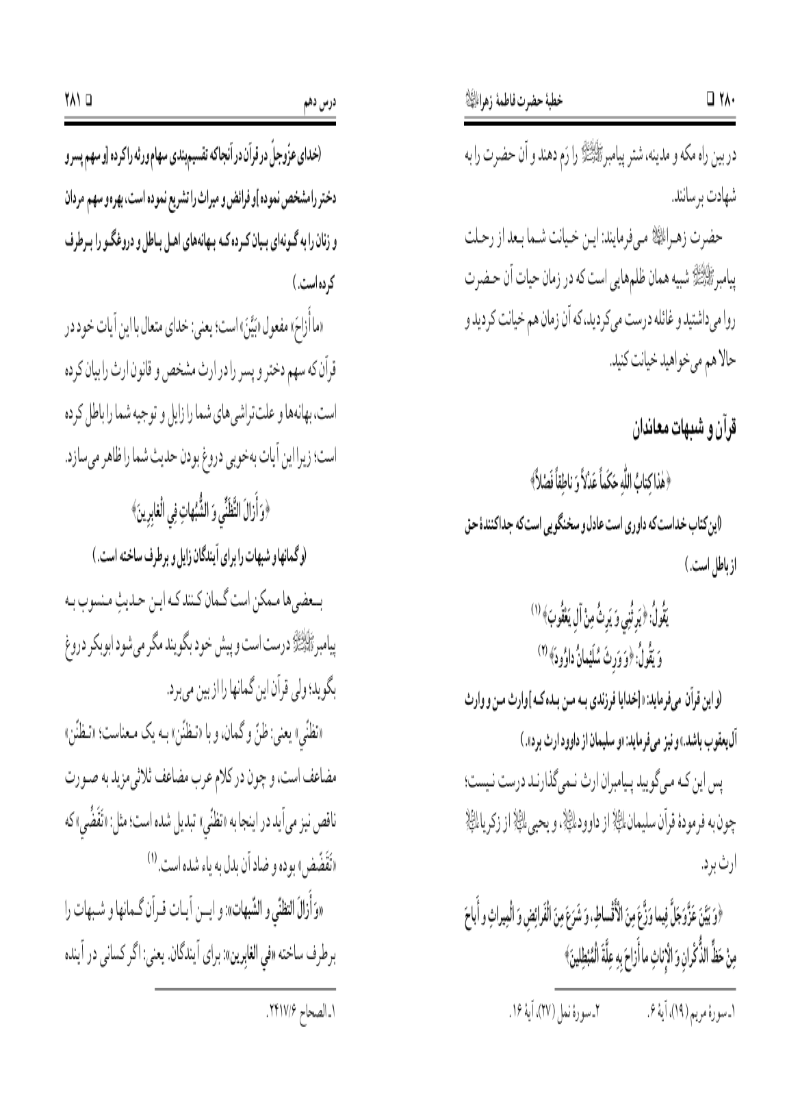 ۲۸۰ ❑ خطبهٔ حضرت فاطمهٔ زهرا﷥
در بین راه مکه و مدینه، شتر پیامبرﷺ را رَم دهند و آن حضرت را به
شهادت برسانند.
حضرت زهـرا می‌فرمایند: این خـیانت شـما بـعد از رحـلت
پیامبرﷺ شبیه همان ظلم‌هایی است که در زمان حیات آن حـضرت
روا می‌داشتید و غائله درست می‌کردید، که آن زمان هم خیانت کردید و
حالا هم می‌خواهید خیانت کنید.
قرآن و شبهات معاندان
﴿هٰذا کِتابُ اللّٰهِ حَکَماً عَدْلاً وَ ناطِقاً فَصْلاً﴾
(این کتاب خداست که داوری است عادل و سخنگویی است که جداکنندهٔ حق
از باطل است.)
یَقُولُ: ﴿یَرِثُنِي وَ یَرِثُ مِنْ آلِ یَعْقُوبَ﴾ (۱)
وَ یَقُولُ: ﴿وَ وَرِثَ سُلَیْمانُ داوُودَ﴾ (۲)
(و این قرآن می‌فرماید: «[خدایا فرزندی به مـن بـده کـه] وارث مـن و وارث
آل‌یعقوب باشد.» و نیز می‌فرماید: «و سلیمان از داوود ارث برد».)
پس این کـه مـی‌گویید پـیامبران ارث نـمی‌گذارنـد درست نـیست؛
چون به فرمودهٔ قرآن سلیمان از داوود، و یحیی از زکریا
ارث برد.
﴿وَ بَیَّنَ عَزَّوَجَلَّ فِیما وَزَّعَ مِنَ الْأَقْساطِ، وَ شَرَعَ مِنَ الْفَرائِضِ وَ الْمِیراثِ و أَباحَ
مِنْ حَظِّ الذُّکْرانِ وَ الْإِناثِ ما أَزاحَ بِهِ عِلَّةَ الْمُبْطِلینَ﴾
۱ـ سورهٔ مریم (۱۹)، آیهٔ ۶. ۲ـ سورهٔ نمل (۲۷)، آیهٔ ۱۶.
درس دهم ❑ ۲۸۱
(خدای عزّوجلّ در قرآن در آنجا که تقسیم‌بندی سهام ورثه را کرده [و سهم پسر و
دختر را مشخص نموده] و فرائض و میراث را تشریع نموده است، بهره و سهم مردان
و زنان را به گـونه‌ای بیان کـرده کـه بـهانه‌های اهـل بـاطل و دروغگـو را بـرطرف
کرده است.)
«ما أَزاحَ» مفعول «بَیَّنَ» است؛ یعنی: خدای متعال با این آیات خود در
قرآن که سهم دختر و پسر را در ارث مشخص و قانون ارث را بیان کرده
است، بهانه‌ها و علت‌تراشی‌های شما را زایل و توجیه شما را باطل کرده
است؛ زیرا این آیات به‌خوبی دروغ بودن حدیث شما را ظاهر می‌سازد.
﴿وَ أَزالَ التَّظَنِّي وَ الشُّبُهاتِ فِي الْغابِرِینَ﴾
(و گمانها و شبهات را برای آیندگان زایل و برطرف ساخته است.)
بـعضی‌ها مـمکن است گـمان کـنند کـه ایـن حـدیثِ مـنسوب بـه
پیامبرﷺ درست است و پیش خود بگویند مگر می‌شود ابوبکر دروغ
بگوید؛ ولی قرآن این گمانها را از بین می‌برد.
«تظنّي» یعنی: ظنّ و گمان، و با «تـظنّن» بـه یک مـعناست؛ «تـظنّن»
مضاعف است، و چون در کلام عرب مضاعف ثلاثی‌مزید به صورت
ناقص نیز می‌آید در اینجا به «تظنّي» تبدیل شده است؛ مثل: «تَقَضّي» که
«تَقَضّض» بوده و ضاد آن بدل به یاء شده است. (۱)
«وَ أَزالَ التظنّي و الشّبهات»: و ایـن آیـات قـرآن گـمانها و شـبهات را
برطرف ساخته «في الغابِرین»: برای آیندگان. یعنی: اگر کسانی در آینده
۱ـ الصحاح ۲۴۱۷/۶.